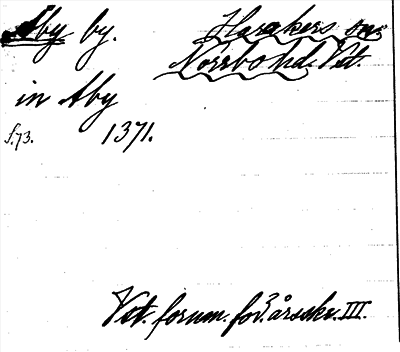 Åby by. Harakers sn
Norrbo hd. Vst.
in Aby
f.73. 1371.
Vst. fornm. för. årsskr. III.